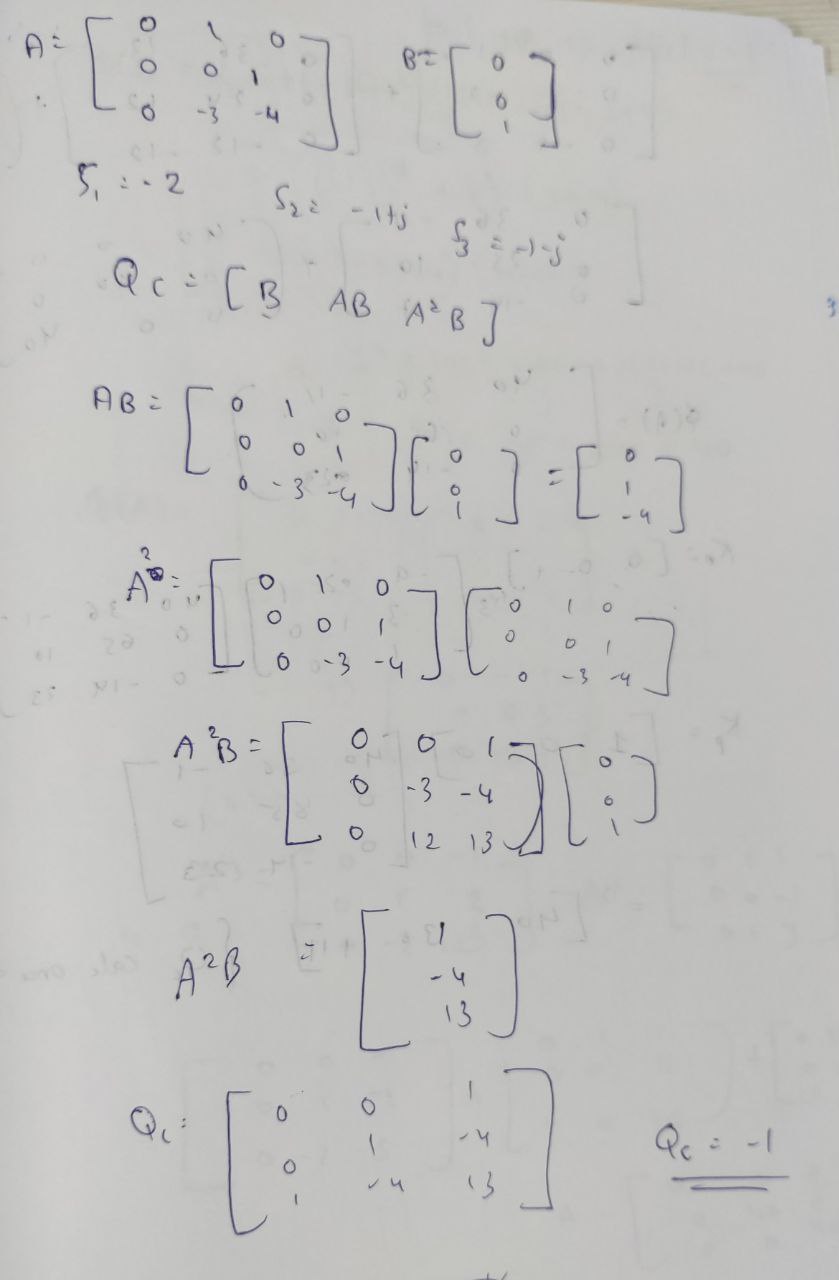 A = [ 0 1 0 ; 0 0 1 ; 0 -3 -4 ] B = [ 0 ; 0 ; 1 ]
S₁ = -2 S₂ = -1+j S₃ = -1-j
Qc = [ B AB A²B ]
AB = [ 0 1 0 ; 0 0 1 ; 0 -3 -4 ] [ 0 ; 0 ; 1 ] = [ 0 ; 1 ; -4 ]
A² = [ 0 1 0 ; 0 0 1 ; 0 -3 -4 ] [ 0 1 0 ; 0 0 1 ; 0 -3 -4 ]
A²B = [ 0 0 1 ; 0 -3 -4 ; 0 12 13 ] [ 0 ; 0 ; 1 ]
A²B = [ 1 ; -4 ; 13 ]
Qc = [ 0 0 1 ; 0 1 -4 ; 1 -4 13 ] Qc = -1